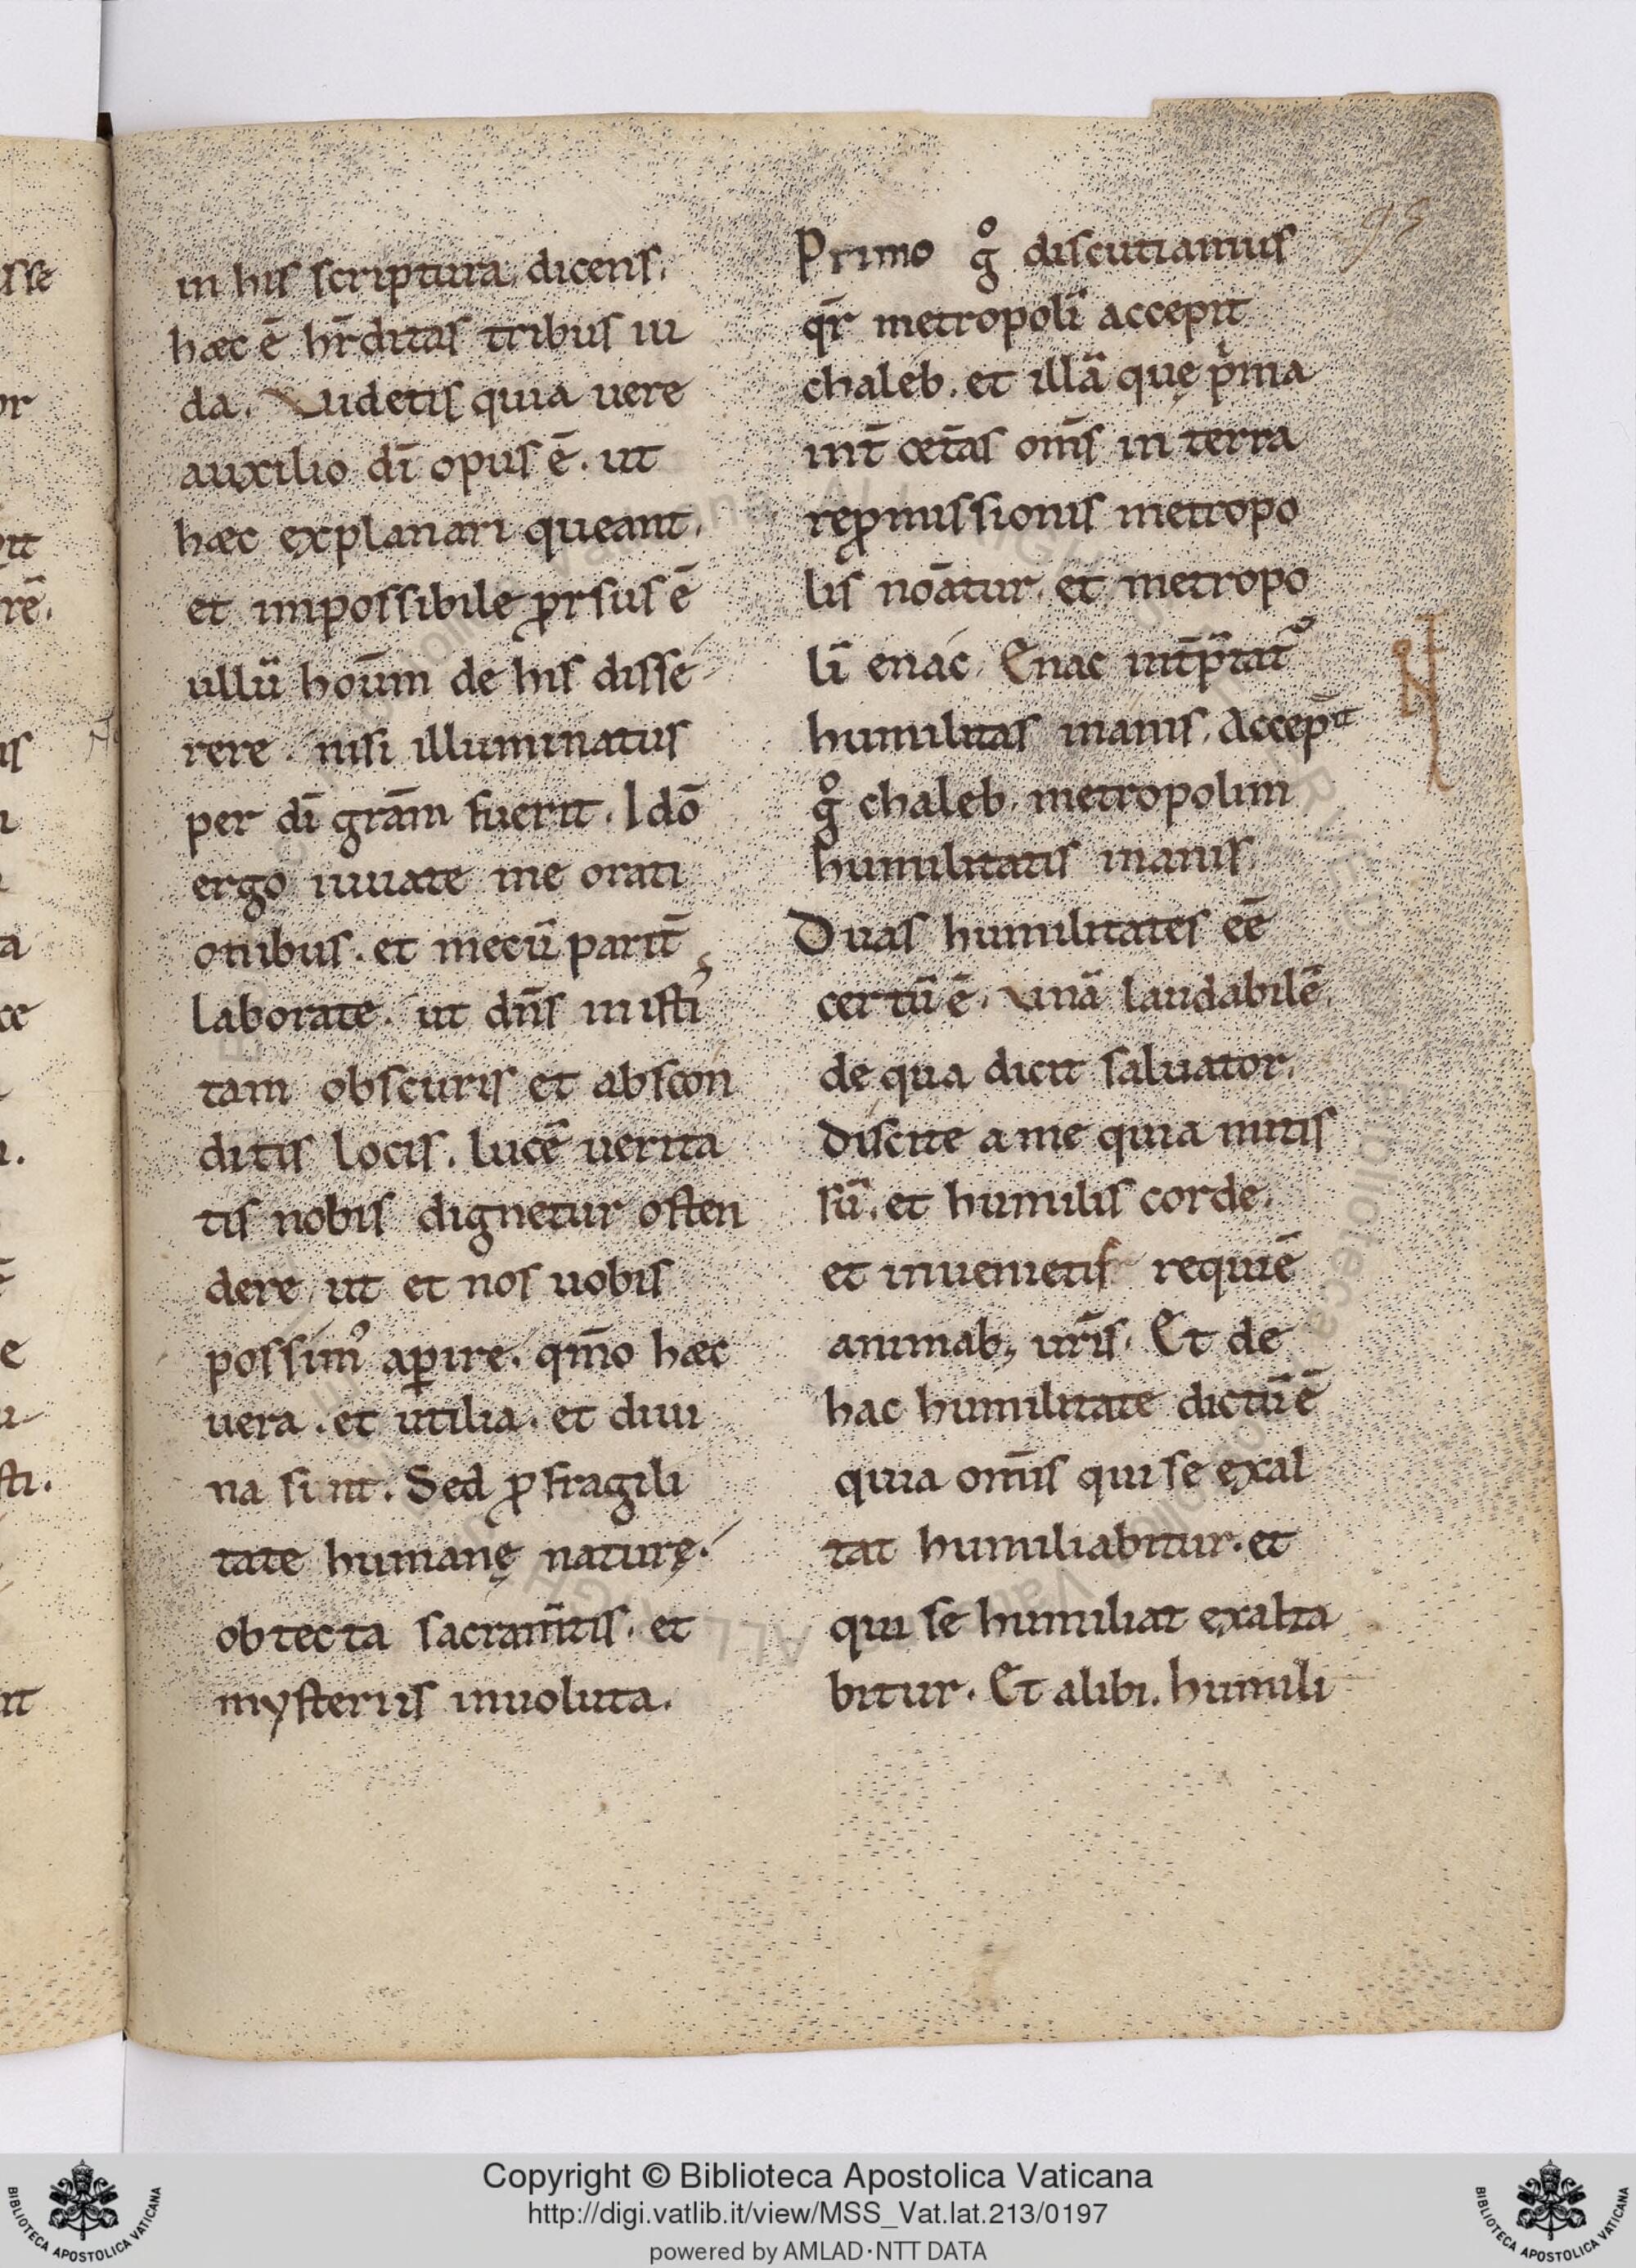 in his scriptura. dicens.
hæc ē hr̄ditas tribus iu
da. Videtis quia uere
auxilio dī opus ē. ut
hæc explanari queant.
et impossibile ꝓrsus ē
ullū hoūm de his disse
rere. nisi illuminatus
per dī grām fuerit. Idō
ergo iuuate me orati
onibus. et mecū parit̄
laborate. ut dn̄s in isti
tam obscuris et abscon
ditis locis. lucē uerita
tis nobis dignetur osten
dere ut et nos uobis
possimꝰ aꝑire. qm̄o hæc
uera. et utilia. et diui
na sunt. Sed ꝓ fragili
tate humanę naturę.
obtecta sacram̄tis. et
mysteriis inuoluta.
Primo gͦ discutiamus
qr̄ metropolī accepit
chaleb. et illā quę pͥma
int̄ cet̄as om̄s in terra
reꝓmissionis metropo
lis noātur. et metropo
lī enac. Enac int̄p̄tat᷑
humilitas inanis. Accep̄it
gͦ chaleb. metropolim
humilitatis inanis.
Duas humilitates eē
certū ē. Vnā laudabilē.
de qua dicit saluator.
Discite a me quia mitis
sū. et humilis corde.
et inuenietis requiē
animab; ur̄is. Et de
hac humilitate dictū ē
quia om̄is qui se exal
tat humiliabitur. et
qui se humiliat exalta
bitur. Et alibi. humili
95
Copyright © Biblioteca Apostolica Vaticana
http://digi.vatlib.it/view/MSS_Vat.lat.213/0197
powered by AMLAD·NTT DATA
BIBLIOTECA APOSTOLICA VATICANA
BIBLIOTECA APOSTOLICA VATICANA